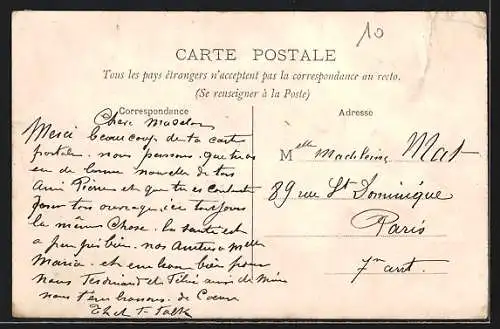 10
CARTE POSTALE
Tous les pays étrangers n'acceptent pas la correspondance au recto.
(Se renseigner à la Poste)
Correspondance
Chere
Merci beaucoup de ta carte
postale. nous pensons que tu as
eu de bonne nouvelle de ton
ami Pierre et que tu es contente
pour ton ouvrage, ici toujours
la même chose. la santé est
a peu près bien. nos
Maria. et bien pour
nous Ferdinand et
nous t'embrassons de Coeur
Adresse
Melle Madeleine Mat
89 rue St Dominique
Paris
7me arrt.